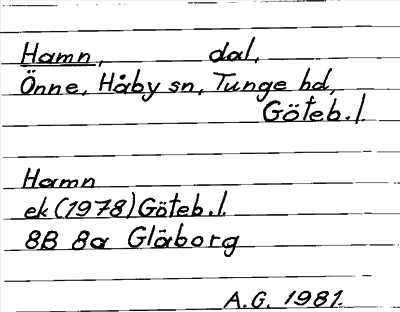 Hamn, dal,
Önne, Håby sn, Tunge hd,
Göteb.l.
Hamn
ek (1978) Göteb.l.
8B 8a Gläborg
A.G. 1981.